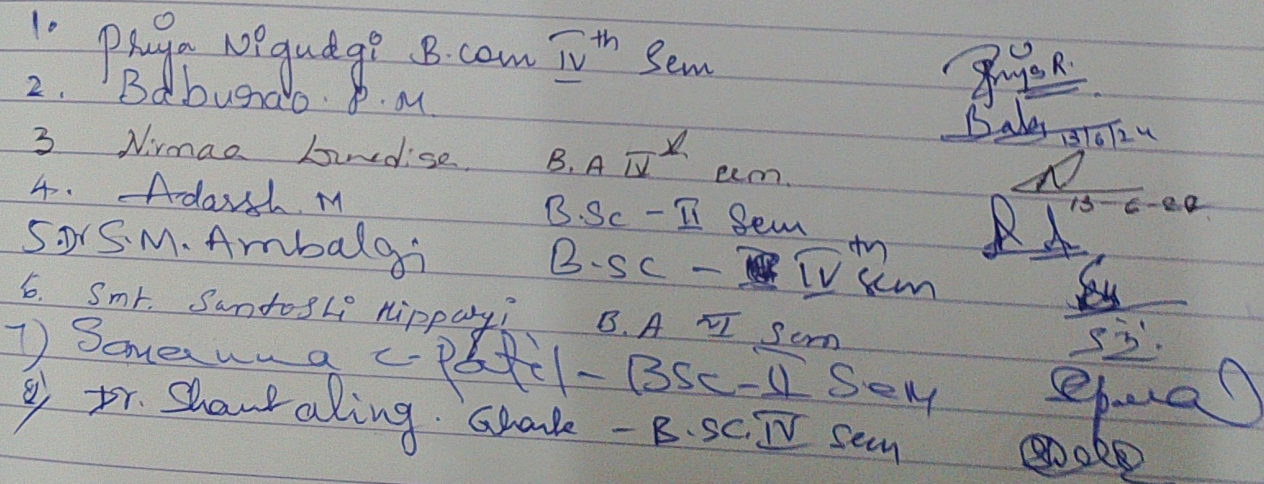 1. Priya Nigudgi B.com IVth Sem Priya R.
2. Baburao. P. M 13/6/24
3 B.A IV
4. Adarsh. M B.Sc - II Sem
5. Dr S.M. Ambalgi B.SC - IVth Sem
6. Smt. Santoshi Hippargi B.A VI Sem
7) C Patil - BSC - II Sem
8) Dr. Shantaling. Ghante - B.SC. IV Sem